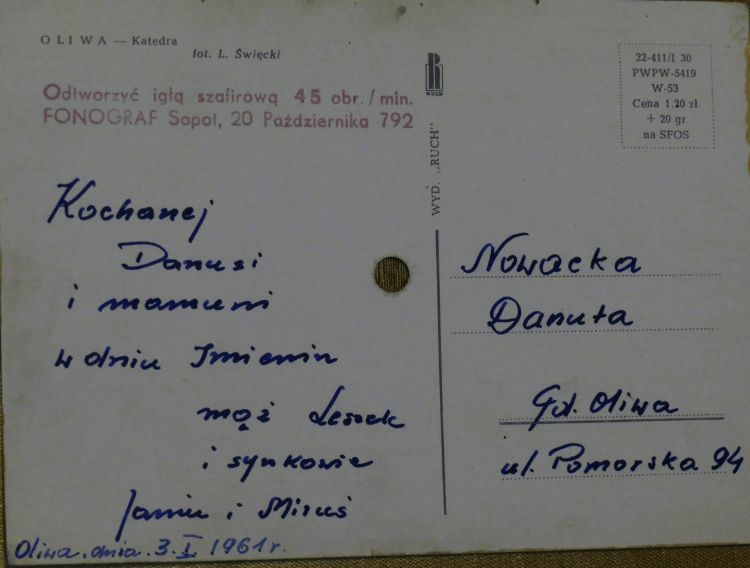 OLIWA — Katedra
fot. L. Święcki
Odtworzyć igłą szafirową 45 obr./min.
FONOGRAF Sopot, 20 Października 792
RUCH
WYD. „RUCH"
22-411/I 30
PWPW-5419
W-53
Cena 1.20 zł
+ 20 gr
na SFOS
Kochanej
Danusi
i mamuni
w dniu Imienin
mąż Leszek
i synkowie
Janiu i Miruś
Oliwa, dnia 3.I 1961 r.
Nowacka
Danuta
Gd. Oliwa
ul. Pomorska 94